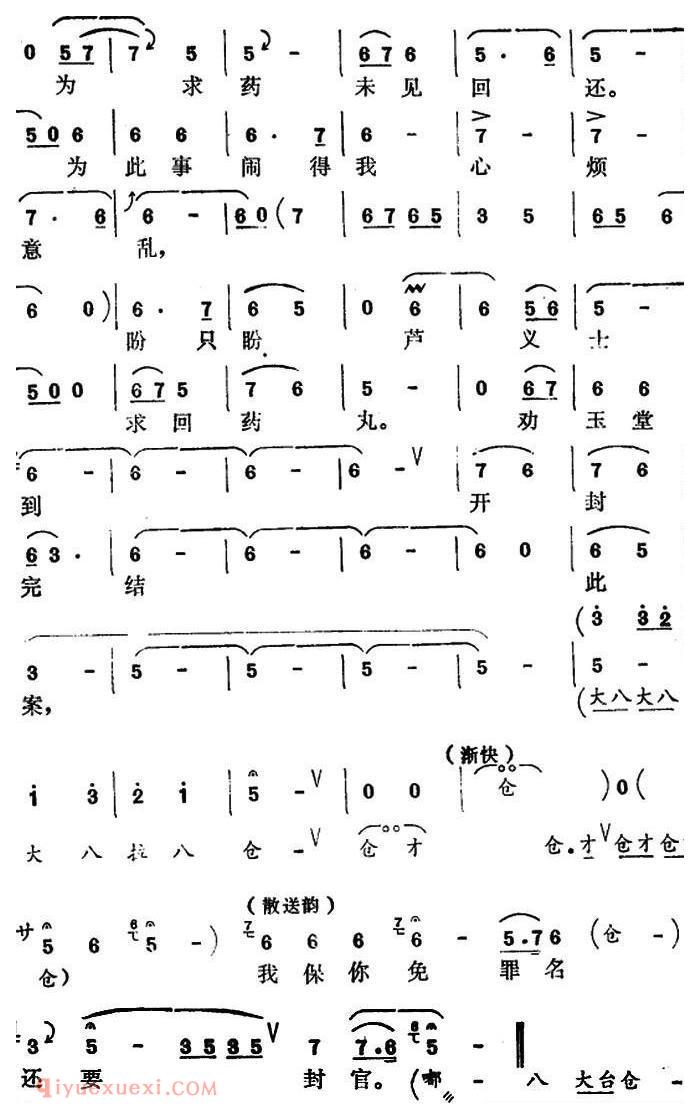 0 5 7 | 7 5 | 5 - | 6 7 6 | 5 . 6 | 5 -
为 求 药 未 见 回 还。
5 0 6 | 6 6 | 6 . 7 | 6 - | 7 - | 7 -
为 此 事 闹 得 我 心 烦
7 . 6 | 6 - | 6 0 ( 7 | 6 7 6 5 | 3 5 | 6 5 6
意 乱，
6 0 ) | 6 . 7 | 6 5 | 0 6 | 6 5 6 | 5 -
盼 只 盼 芦 义 士
5 0 0 | 6 7 5 | 7 6 | 5 - | 0 6 7 | 6 6
求 回 药 丸。 劝 玉 堂
6 - | 6 - | 6 - | 6 - | 7 6 | 7 6
到 开 封
6 3 . | 6 - | 6 - | 6 - | 6 0 | 6 5
完 结 此
( 3 3 2
3 - | 5 - | 5 - | 5 - | 5 - | 5 -
案， (大八大八
(渐快)
1 3 | 2 1 | 5 - | 0 0 | 仓 ) 0 (
大 八 拉 八 仓 - 仓 才 仓 . 才 仓 才 仓
(散送韵)
サ 5 6 6 5 - ) 7 6 6 6 7 6 - 5 . 7 6 ( 仓 - )
仓) 我 保 你 免 罪 名
3 5 - 3 5 3 5 7 7 . 6 6 5 -
还 要 封 官。 (嘟 - 八 大 台 仓 -
qiyuexuexi.com(奇乐学习)